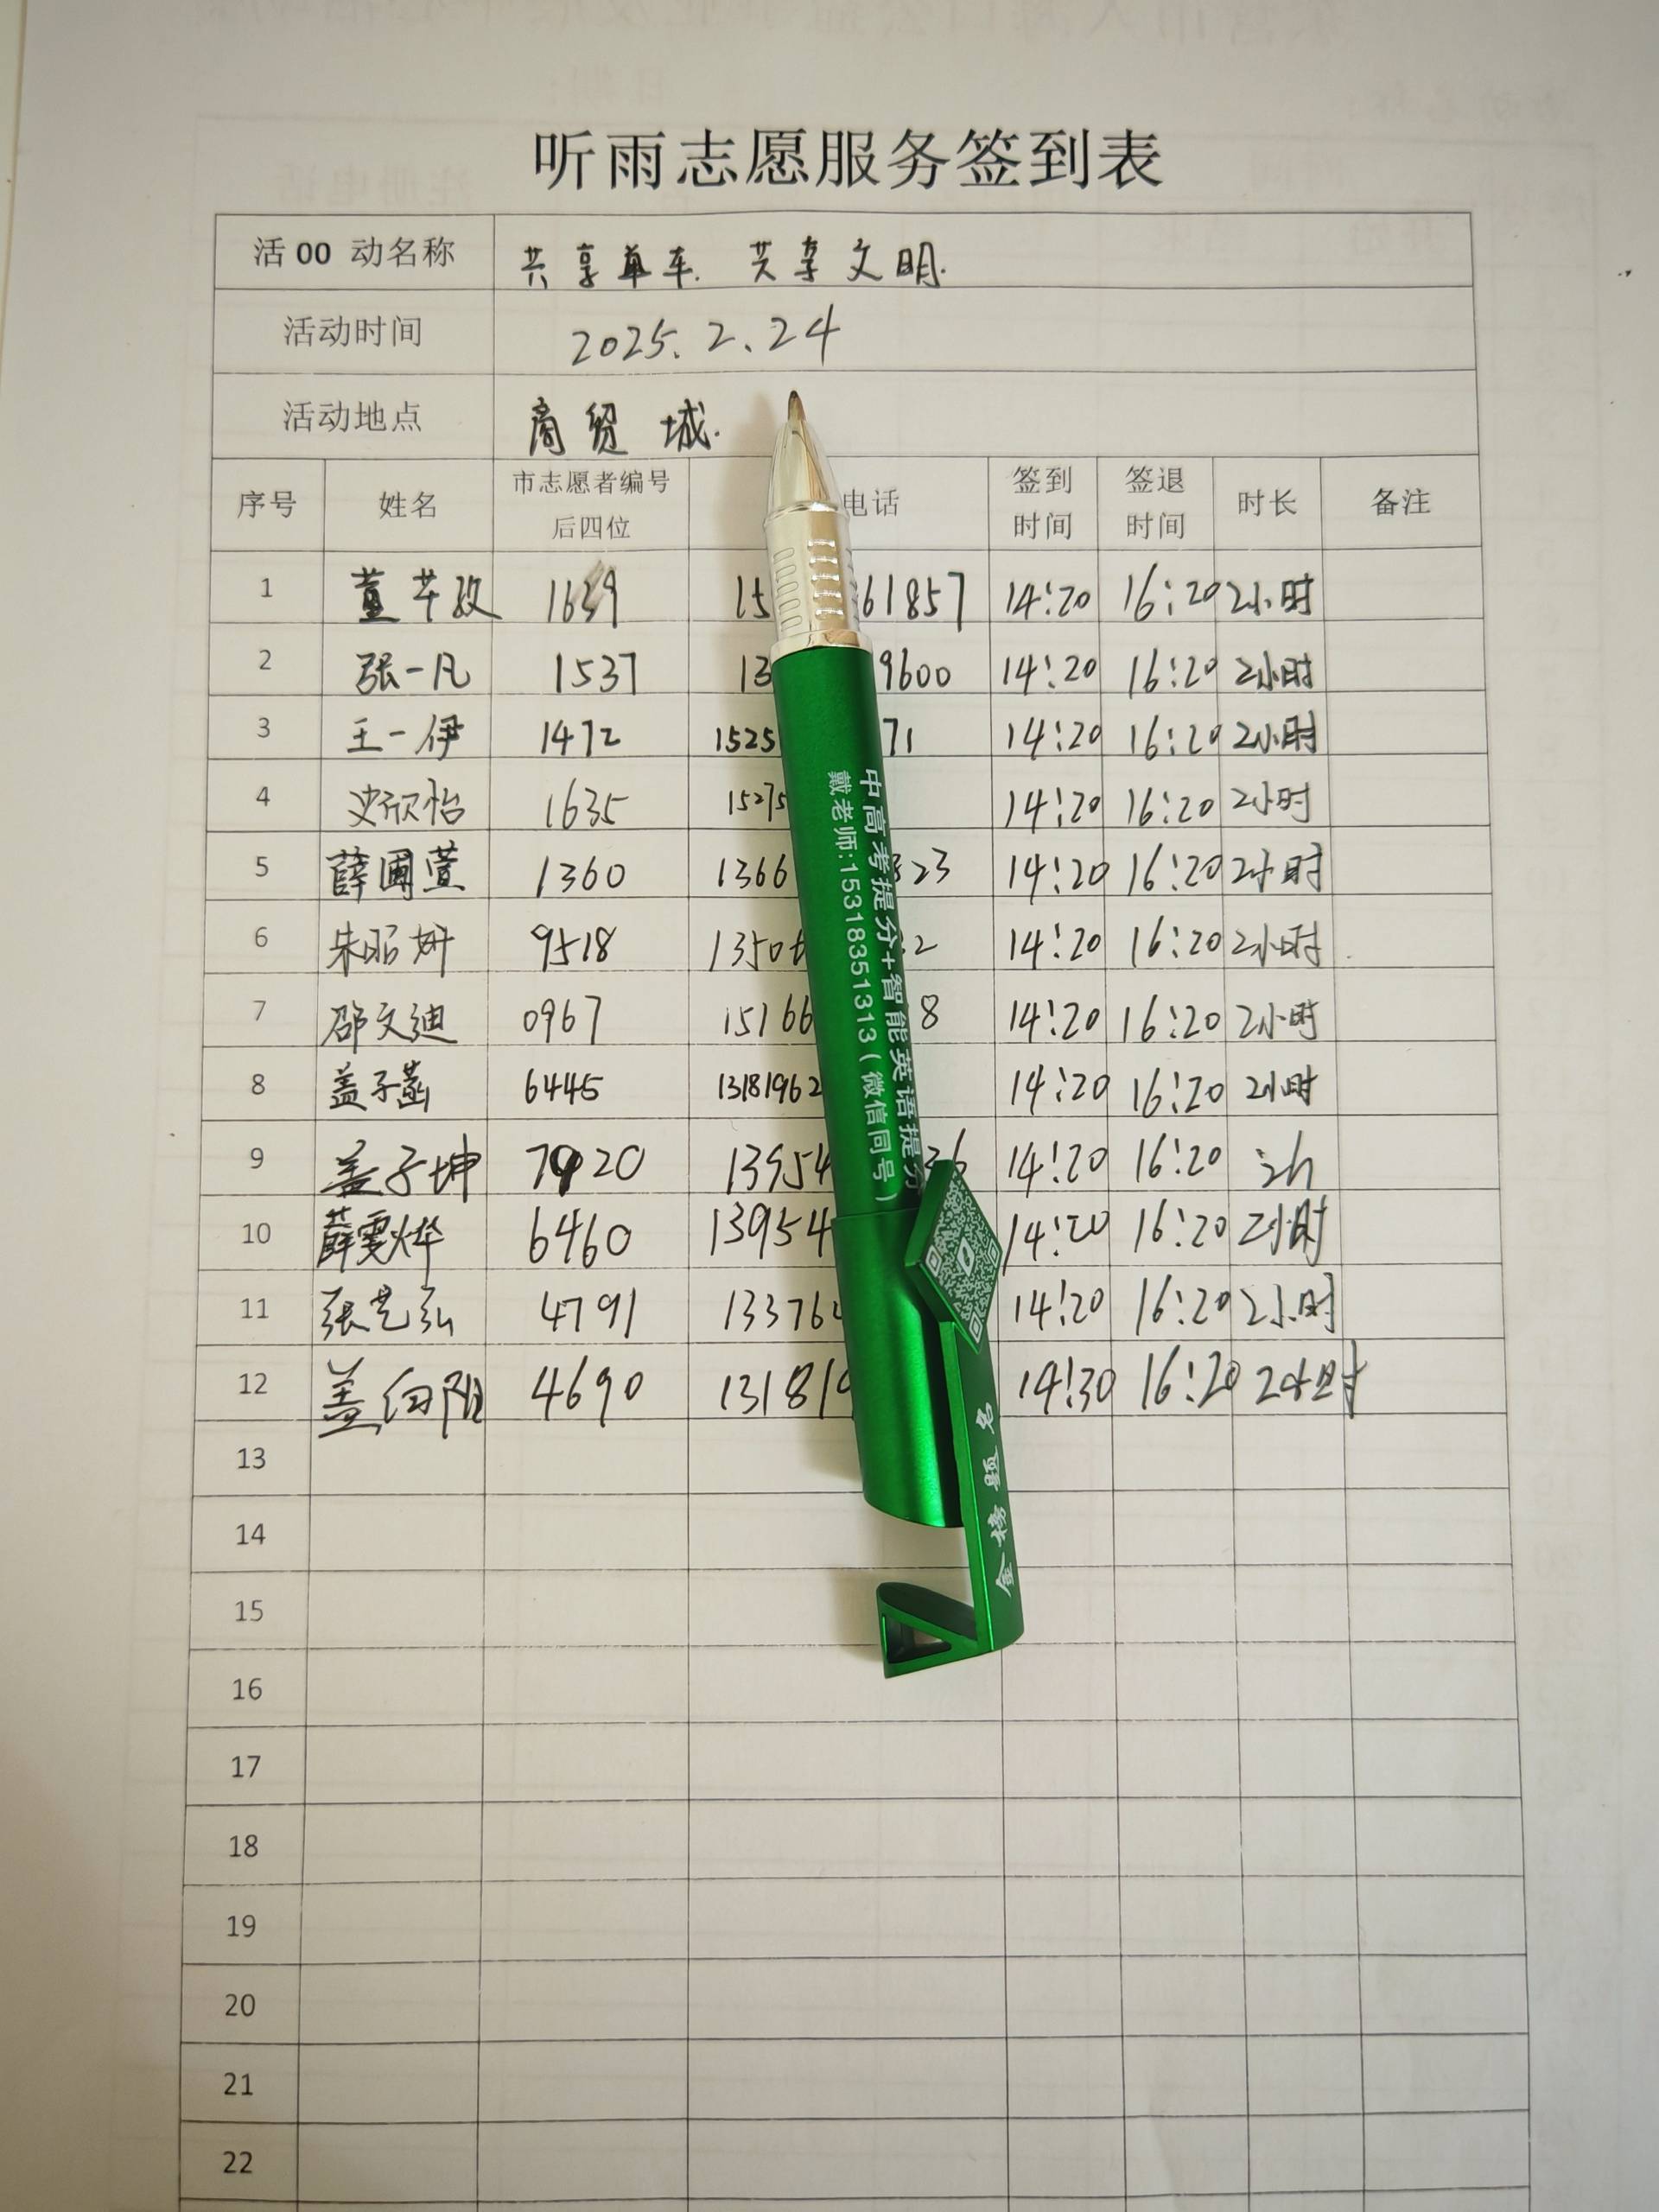 听雨志愿服务签到表
活00 动名称 共享单车. 共享文明.
活动时间 2025.2.24
活动地点 商贸城.
序号 姓名 市志愿者编号后四位 电话 签到时间 签退时间 时长 备注
1 董芊孜 1639 15 61857 14:20 16:20 2小时
2 张一凡 1537 13 9600 14:20 16:20 2小时
3 王一伊 1472 1525 71 14:20 16:20 2小时
4 史欣怡 1635 15275 14:20 16:20 2小时
5 薛圃萱 1360 1366 23 14:20 16:20 2小时
6 朱昭妍 9518 1350 2 14:20 16:20 2小时
7 邵文迪 0967 15166 8 14:20 16:20 2小时
8 盖子菡 6445 13181962 14:20 16:20 2小时
9 盖子坤 7920 13954 36 14:20 16:20 2h
10 薛雯烨 6460 13954 14:20 16:20 2小时
11 张艺泓 4791 13376 14:20 16:20 2小时
12 盖向阳 4690 13181 14:30 16:20 2小时
13
14
15
16
17
18
19
20
21
22
中高考提分+智能英语提分
戴老师:15318351313(微信同号)
金榜题名